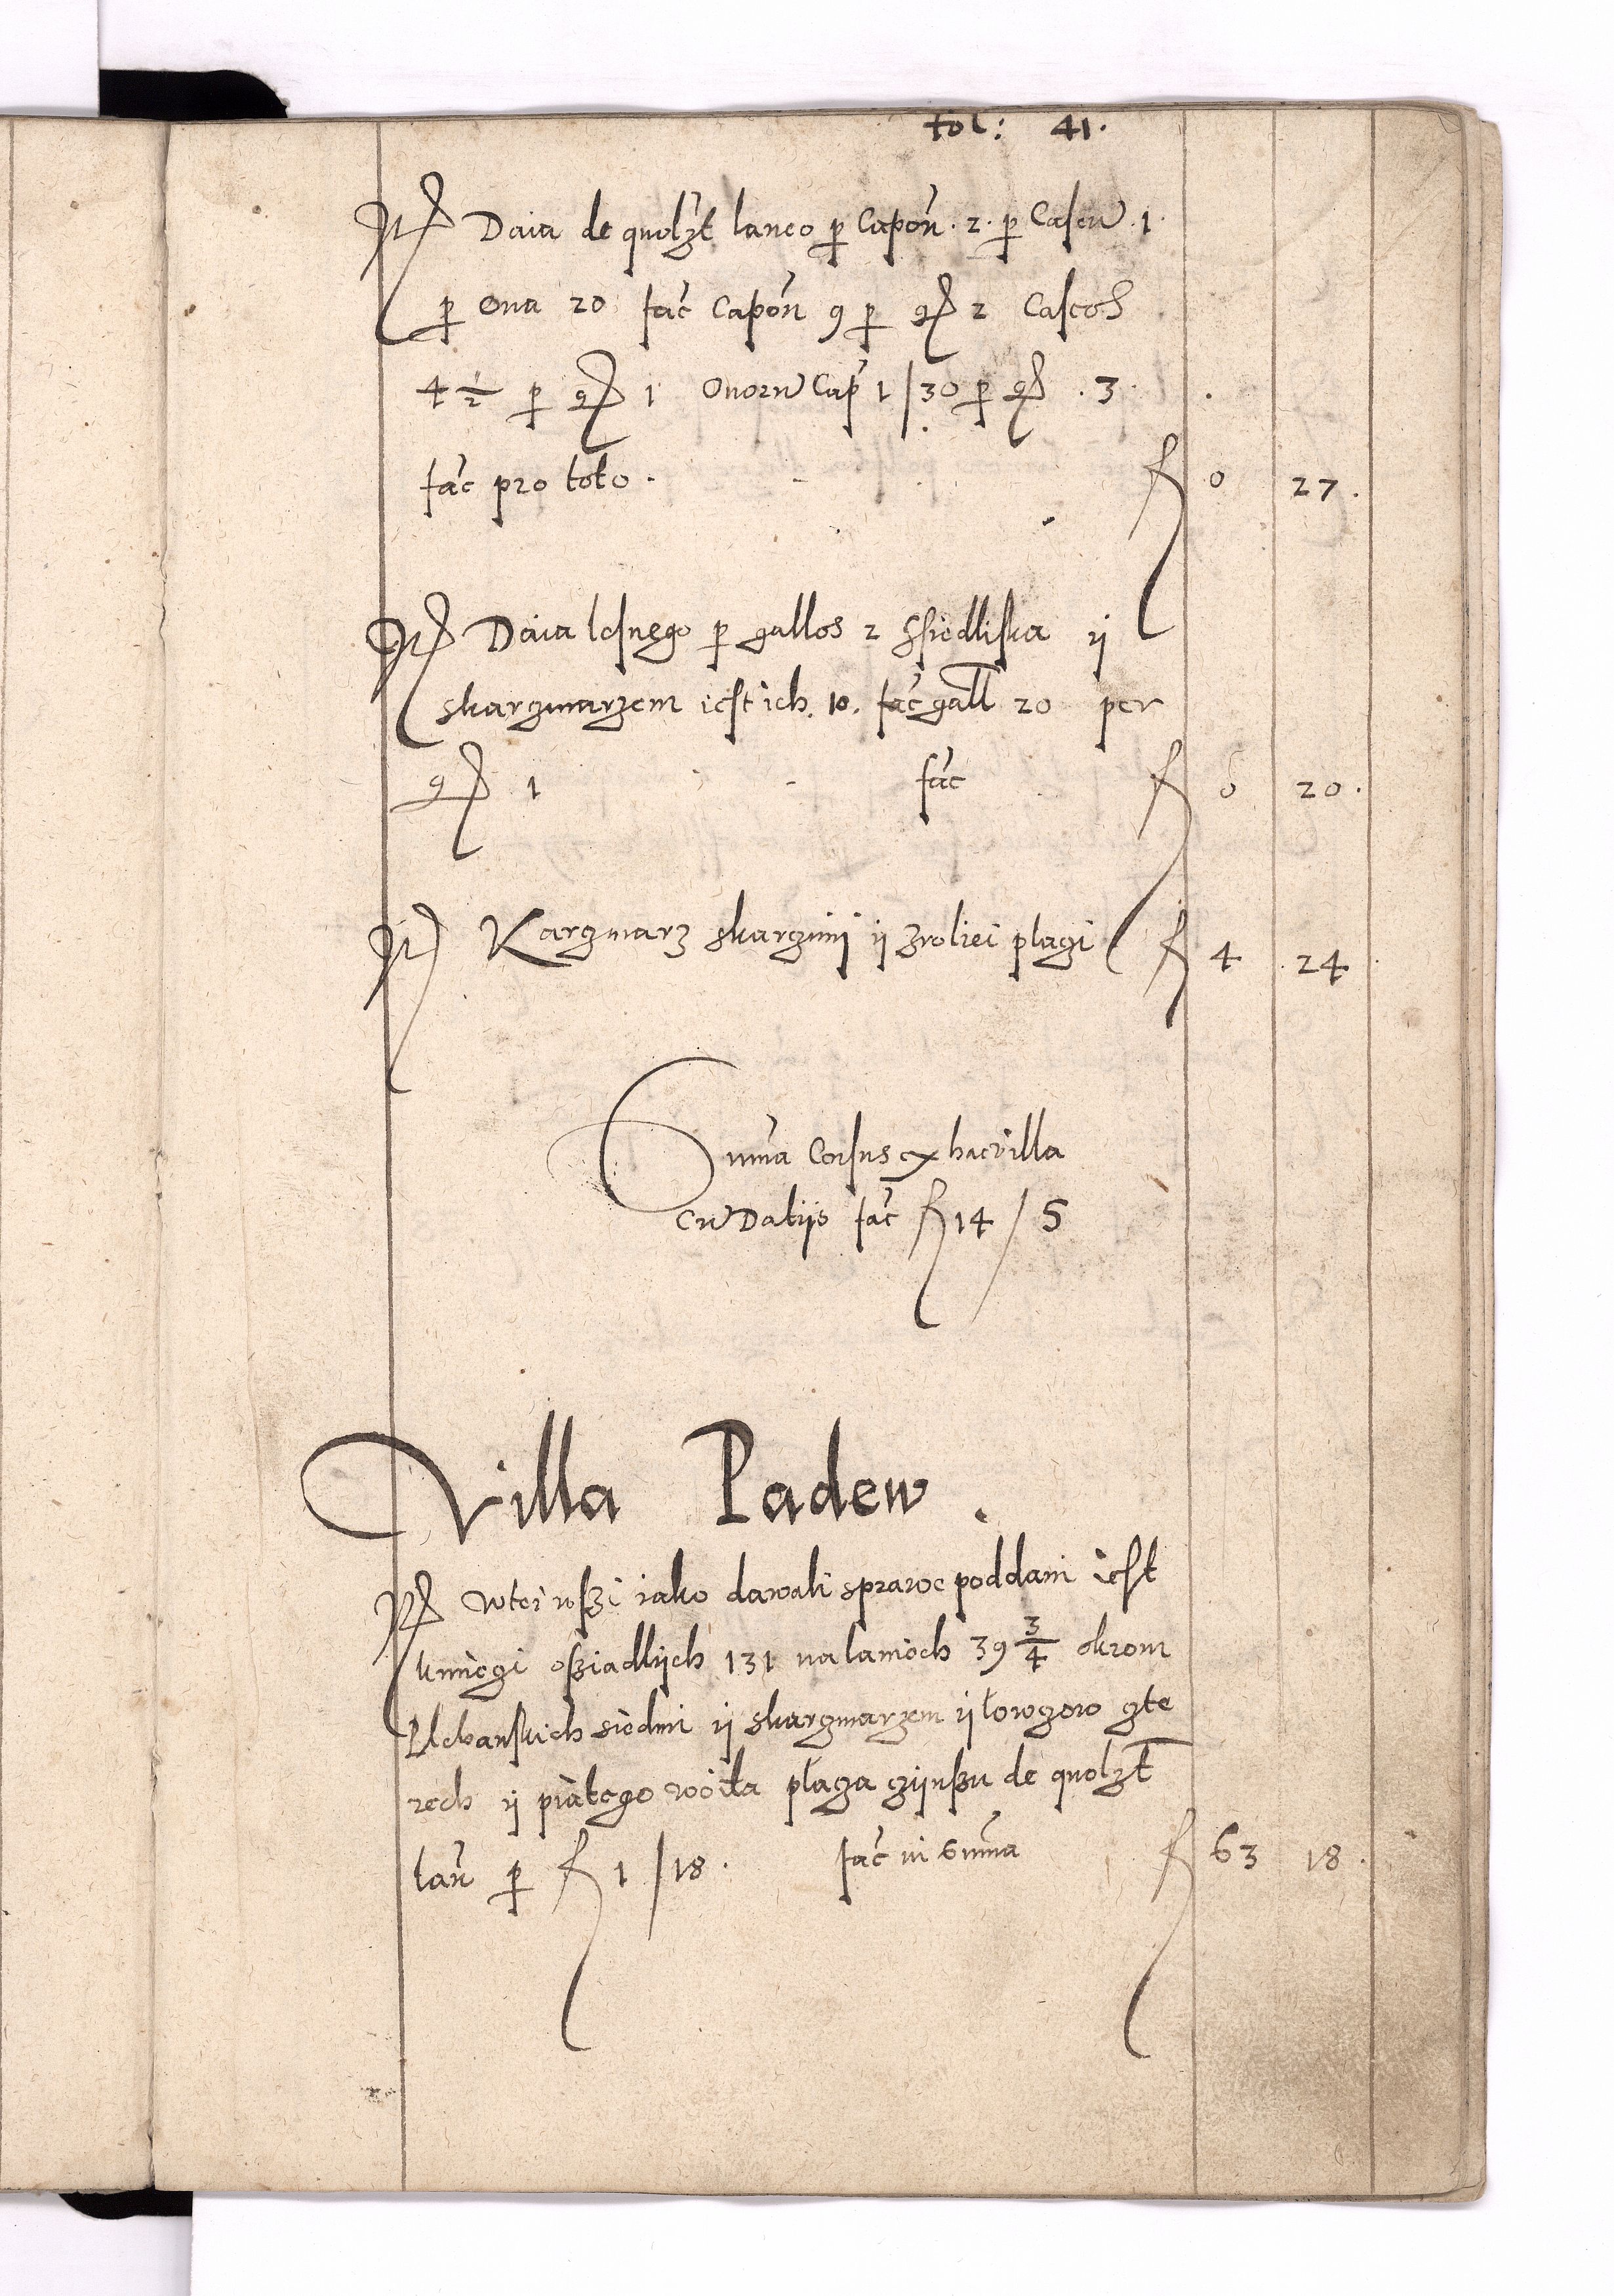 fol: 41.
It Daia de quolzt laneo p Capon. 2. p Caseu 1.
p Oua 20 fac Capon 9 p gr 2 Caseos
4 1/2 p gr 1 Ouoru Cap 1/30 p gr .3.
fac pro toto . f 0 27.
It Daia lesnego p gallos 2 ssiedliska ij
skarzmarzem iest ich. 10. fac gall 20 per
gr 1 fac f 0 20.
It Karzmarz skarzmij ij zroliei plazi f 4 24
Suma Census ex hac villa
cu Datijs fac f 14/5
Villa Padew.
It wtei wszi iako dawali sprawe poddani iest
kmiezi osziadlijch 131 na laniech 39 3/4 okrom
Plebanskich siedmi ij skarzmarzem ij lowczow czte
rech ij piatego woita placza czijnszu de quolzt
lan p f 1/18. fac in Suma f 63 18.